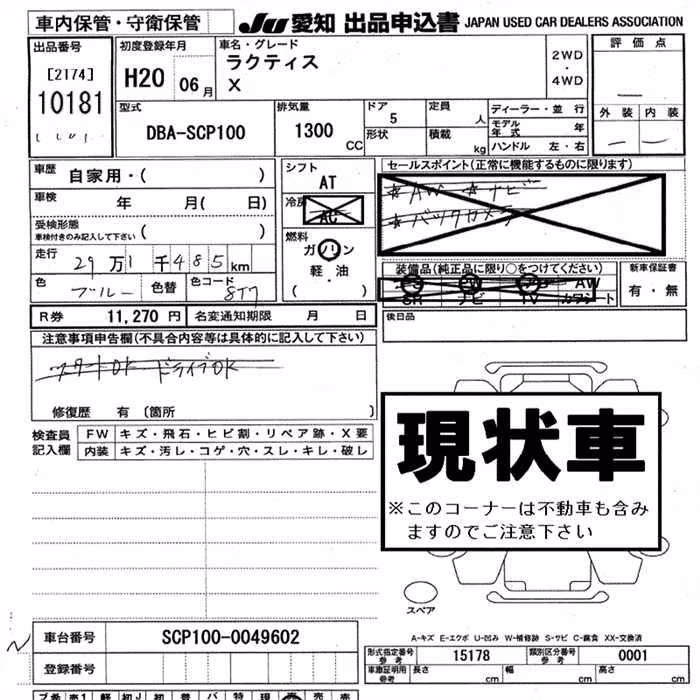 車内保管・守衛保管
JU 愛知 出品申込書 JAPAN USED CAR DEALERS ASSOCIATION
出品番号
[2174]
10181
初度登録年月
H20 06月
車名・グレード
ラクティス
X
2WD
・
4WD
評価点
外装 内装
型式
DBA-SCP100
排気量
1300
CC
ドア
5
形状
定員
人
積載
kg
ディーラー・並行
モデル年式 年
ハンドル 左・右
車歴
自家用・( )
車検 年 月( 日)
受検形態
車検付きのみ記入して下さい ( )
走行
29万1千485km
色 ブルー 色替 色コード 8T7
R券 11,270 円 名変通知期限 月 日
シフト
AT
冷房
AC
燃料
ガソリン
軽・油
( ・ )
セールスポイント(正常に機能するものに限ります)
☆ AW ☆ ナビ
☆ バックカメラ
装備品(純正品に限り○をつけてください)
PS PW AW
SR ナビ TV カワシート
新車保証書
有・無
後日品
注意事項申告欄(不具合内容等は具体的に記入して下さい)
スタートOK ドライブOK
修復歴 有 〔箇所 〕
検査員
記入欄
FW キズ・飛石・ヒビ割・リペア跡・X要
内装 キズ・汚レ・コゲ・穴・スレ・キレ・破レ
現状車
※このコーナーは不動車も含み
ますのでご注意下さい
スペア
A-キズ E-エクボ U-凹み W-補修跡 S-サビ C-腐食 XX-交換済
車台番号 SCP100-0049602
登録番号
形式指定番号
参考
15178
類別区分番号
参考
0001
車庫証明用
参考
長さ cm 幅 cm 高さ cm